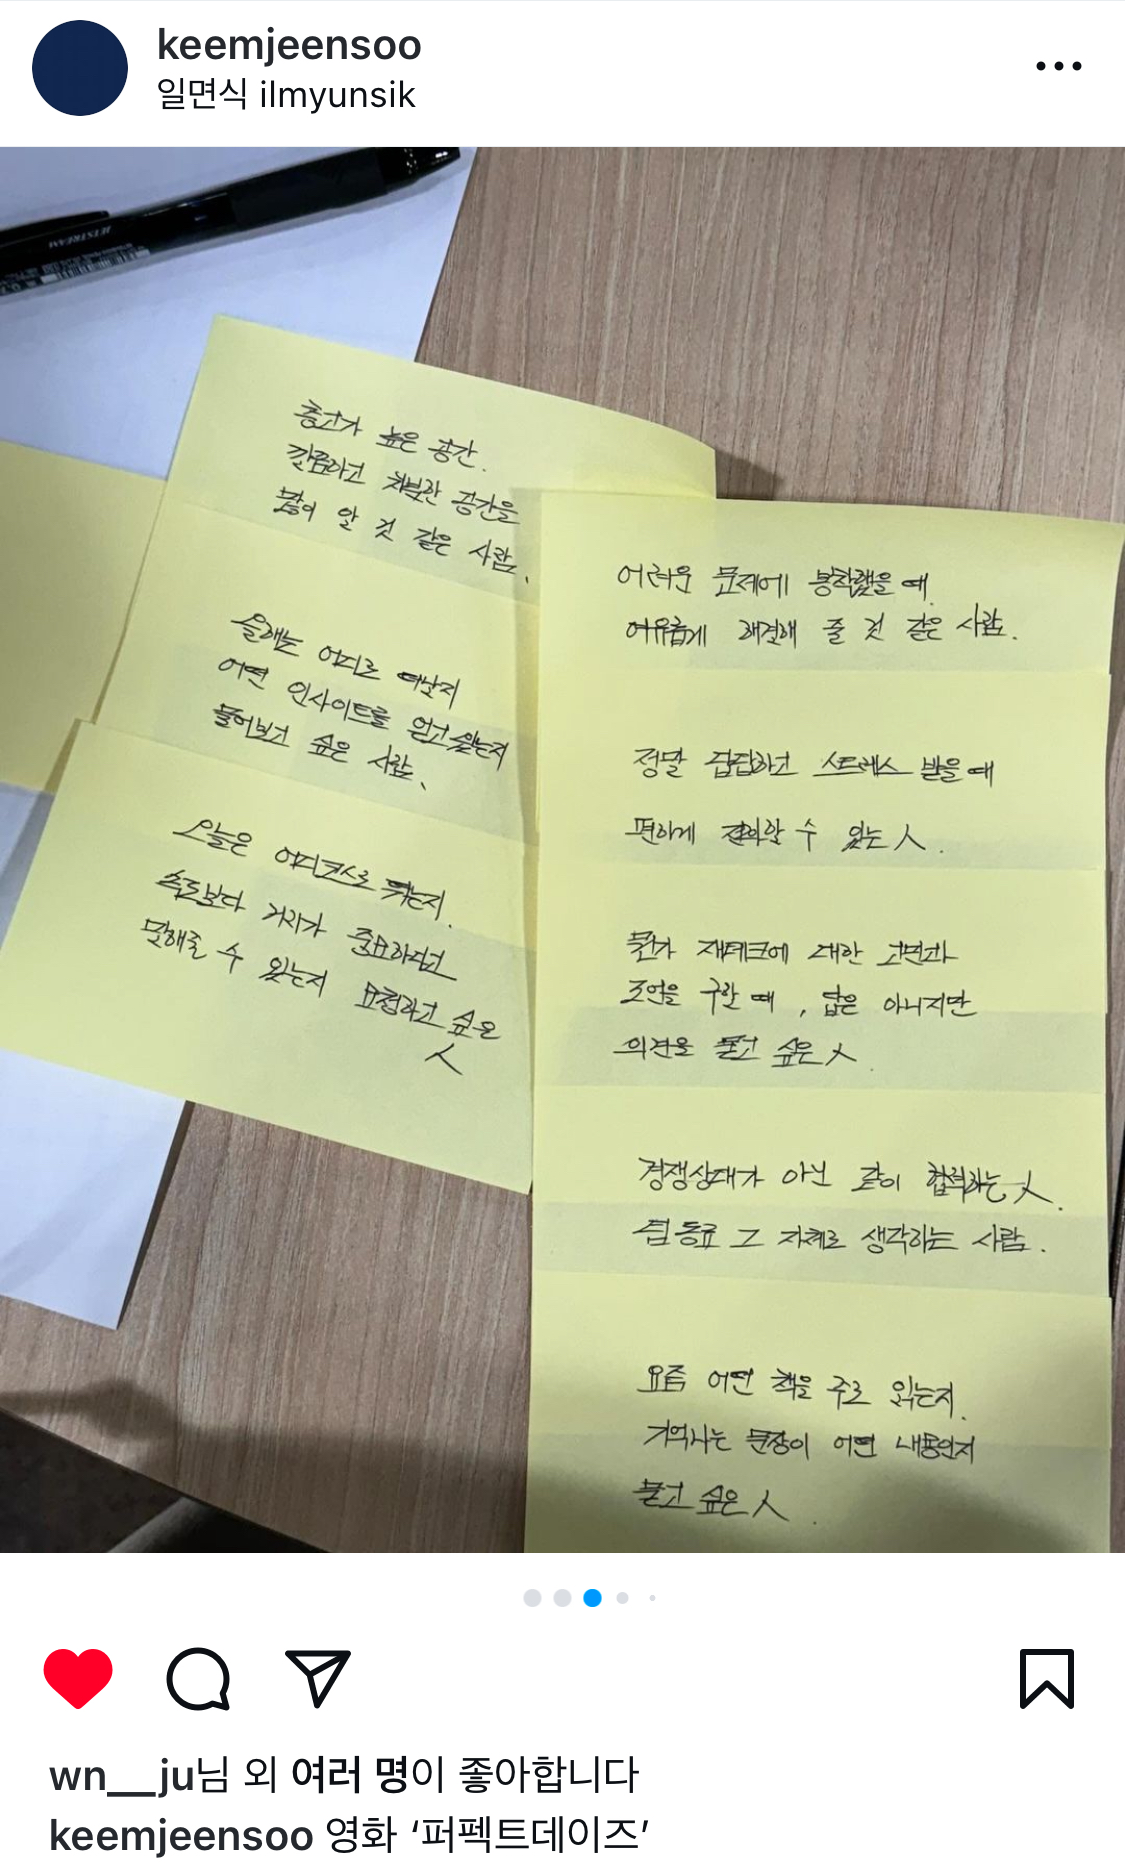 keemjeensoo
일면식 ilmyunsik
JETSTREAM
층고가 높은 공간.
깔끔하고 차분한 공간을
많이 알 것 같은 사람.
올해는 어디로 떠날지
어떤 인사이트를 얻고 있는지
물어보고 싶은 사람.
오늘은 어디코스로 뛰는지.
속도보다 거리가 중요하다고
말해줄 수 있는지 요청하고 싶은
人
어려운 문제에 봉착했을 때
여유롭게 해결해 줄 것 같은 사람.
정말 답답하고 스트레스 받을 때
편하게 전화할 수 있는 人.
문가 재테크에 대한 고민과
조언을 구할 때, 답은 아니지만
의견을 묻고 싶은 人.
경쟁상대가 아닌 같이 협력하는 人.
팀 동료 그 자체로 생각하는 사람.
요즘 어떤 책을 주로 읽는지.
기억나는 문장이 어떤 내용인지
묻고 싶은 人.
wn__ju님 외 여러 명이 좋아합니다
keemjeensoo 영화 ‘퍼펙트데이즈’